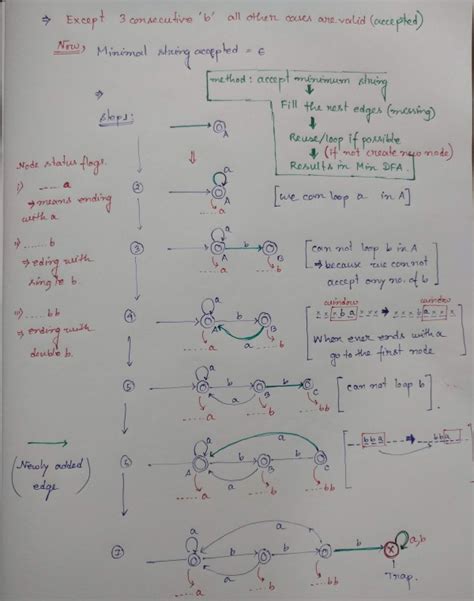 ⇒ Except 3 consecutive 'b' all other cases are valid (accepted)
Now, Minimal string accepted = ϵ
method: accept minimum string
Fill the rest edges (missing)
Reuse/loop if possible
(if not create new node)
Results in Min DFA.
⇒
steps:
A
Node status flags.
i) ....... a
⇒ means ending
with a
②
a
A
...... a
[we can loop a in A]
ii) ....... b
⇒ eding with
single b.
③
a
b
A
B
...... a
...... b
can not loop b in A
⇒ because we can not
accept any no. of b
iii) ....... bb
⇒ ending with
double b.
④
a
b
a
B
...... a
...... b
window
window
x x x b a x x x ⇒ x x x b a x x x
When ever ends with a
go to the first node
⑤
a
b
b
a
B
C
...... a
...... b
...... bb
[can not loop b]
(Newly added
edge)
⑥
a
a
b
b
a
A
B
C
...... a
...... b
...... bb
bba
bba
⑦
a
a
b
b
b
a
X
a,b
...... a
...... b
...... bb
Trap.